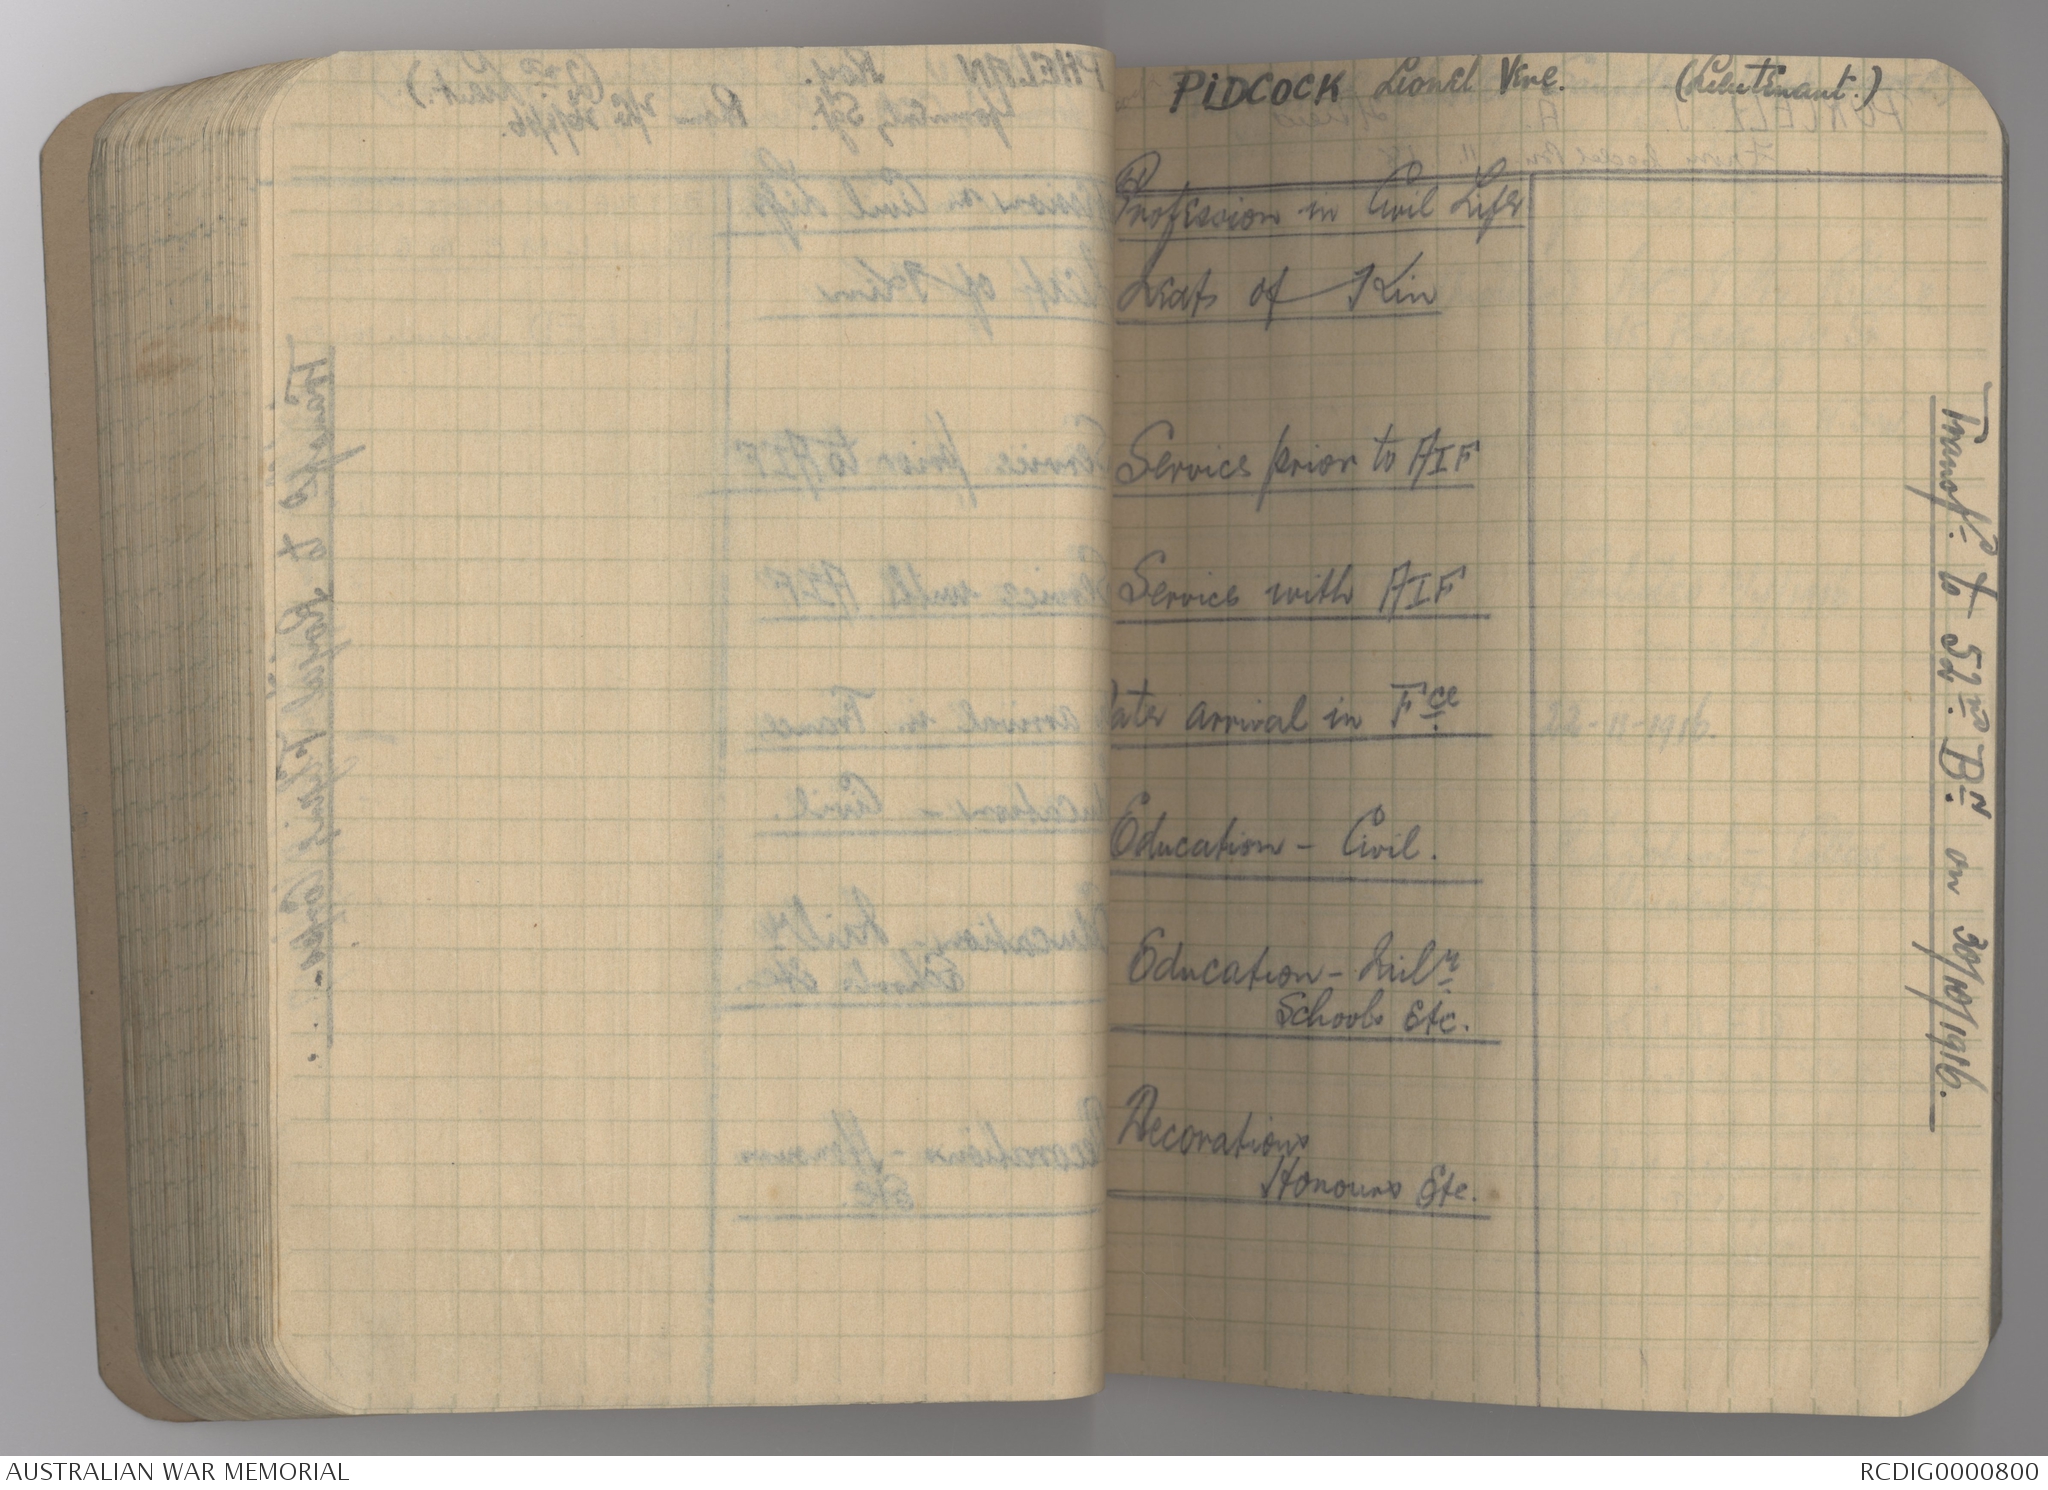 PIDCOCK Lionel Vere. (Lieutenant.)
Profession in Civil Life
Next of Kin
Service prior to AIF
Service with AIF
Date arrival in Fce. 22-11-1916.
Education - Civil.
Education - Mily
Schools Etc.
Decorations
Honours Etc.
Transf:d to 52nd Bn: on 30/10/1916.
AUSTRALIAN WAR MEMORIAL
RCDIG0000800